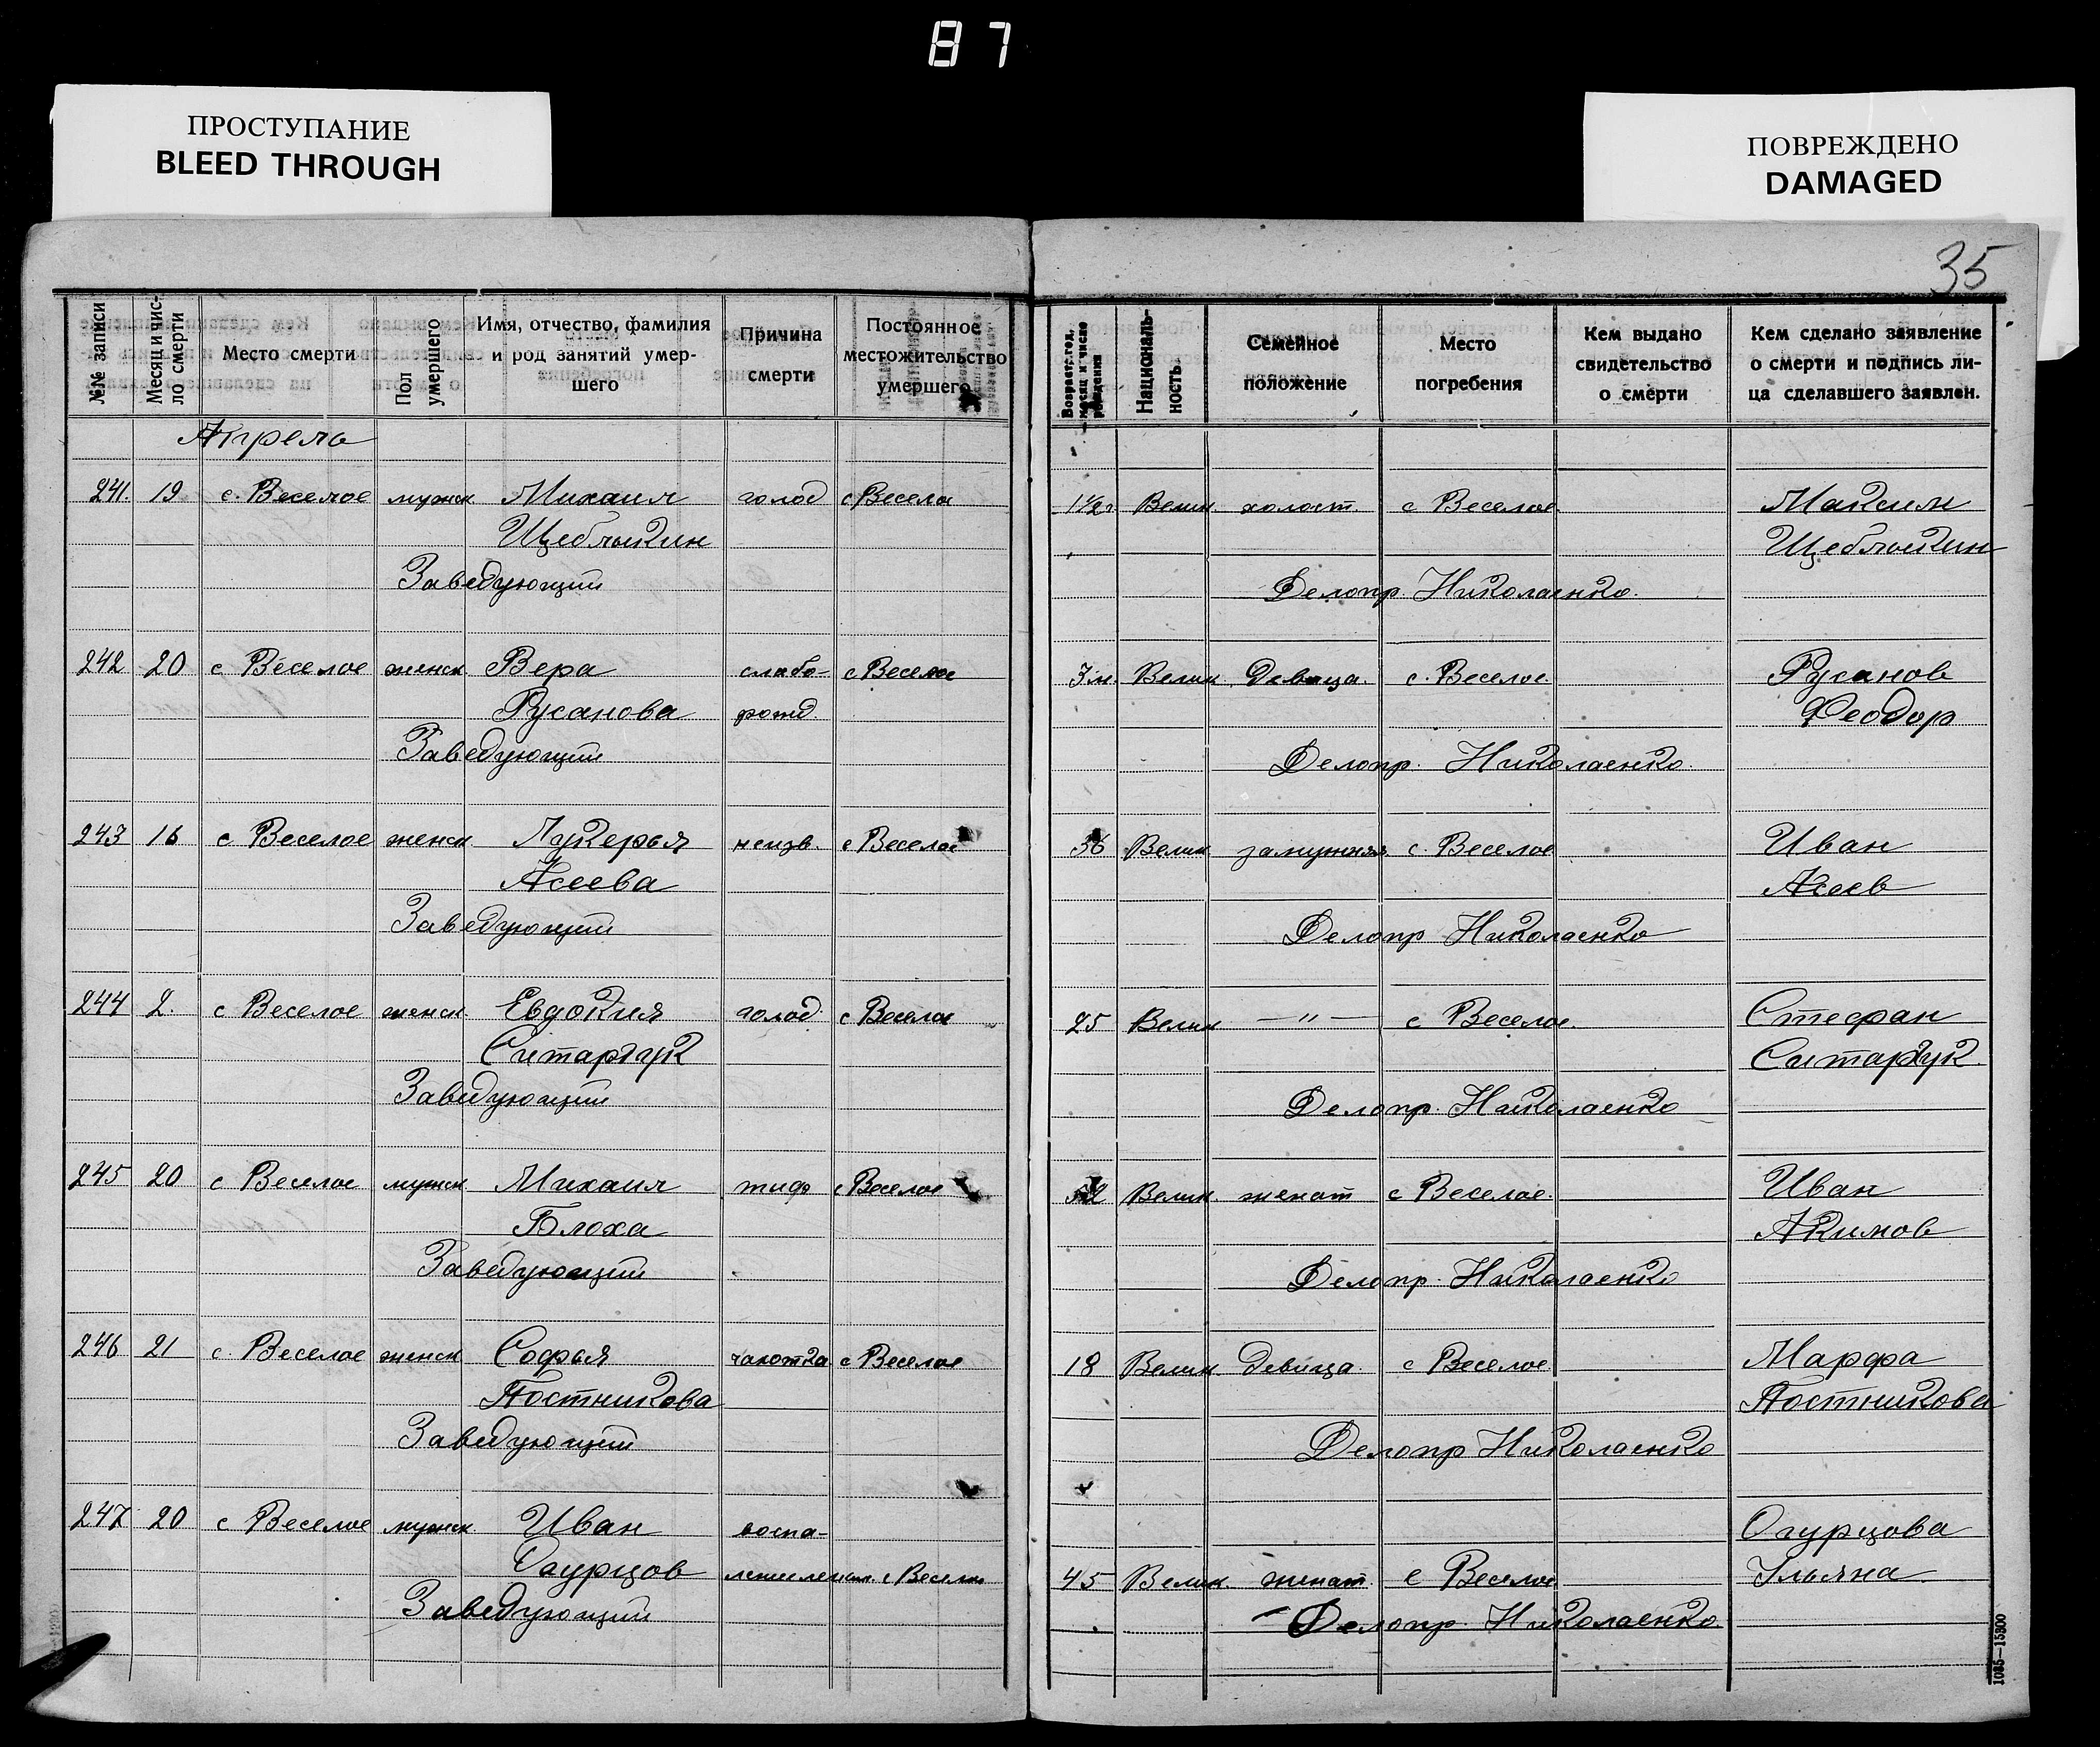 87
ПРОСТУПАНИЕ
BLEED THROUGH
ПОВРЕЖДЕНО
DAMAGED
35
№№ записи
Месяц и чис-
ло смерти
Место смерти
Пол
умершего
Имя, отчество, фамилия
и род занятий умер-
шего
Причина
смерти
Постоянное
местожительство
умершего
Возраст: год,
месяц и число
рождения
Националь-
ность.
Семейное
положение
Место
погребения
Кем выдано
свидетельство
о смерти
Кем сделано заявление
о смерти и подпись ли-
ца сделавшего заявлен.
Апрель
241. 19 с. Веселое мужск Михаил голод с Весело 1½ г Велик. холост. с Веселое Максим
Щеблыкин Щеблыкин
Заведующий Делопр. Николаенко.
242 20 с Веселое женск Вера слабо- с Веселое 3 м. Велик. девица. с. Веселое Русанов
Русанова рожд. Феодор
Заведующий Делопр. Николаенко.
243 16 с Веселое женск Лукерья неизв. с Веселое 36 Велик замужняя с. Веселое Иван
Асеева Асеев
Заведующий Делопр Николаенко
244 2. с Веселое женск Евдокия голод с Веселое 25 Велик — " — с Веселое. Стефан
Ситарчук Ситарчук.
Заведующий Делопр. Николаенко
245 20 с Веселое мужск Михаил тиф с Веселое Велик. женат с Веселое. Иван
Блоха Акимов
Заведующий Делопр. Николаенко
246 21 с. Веселое женск Софья чахотка с Веселое 18 Велик. девица. с Веселое Марфа
Постникова Постникова
Заведующий Делопр Николаенко
247 20 с Веселое мужск. Иван воспа- Огурцова
Огурцов с Веселое 45 Велик. женат. с Веселое Ульяна
Заведующий Делопр. Николаенко.
1035—15300